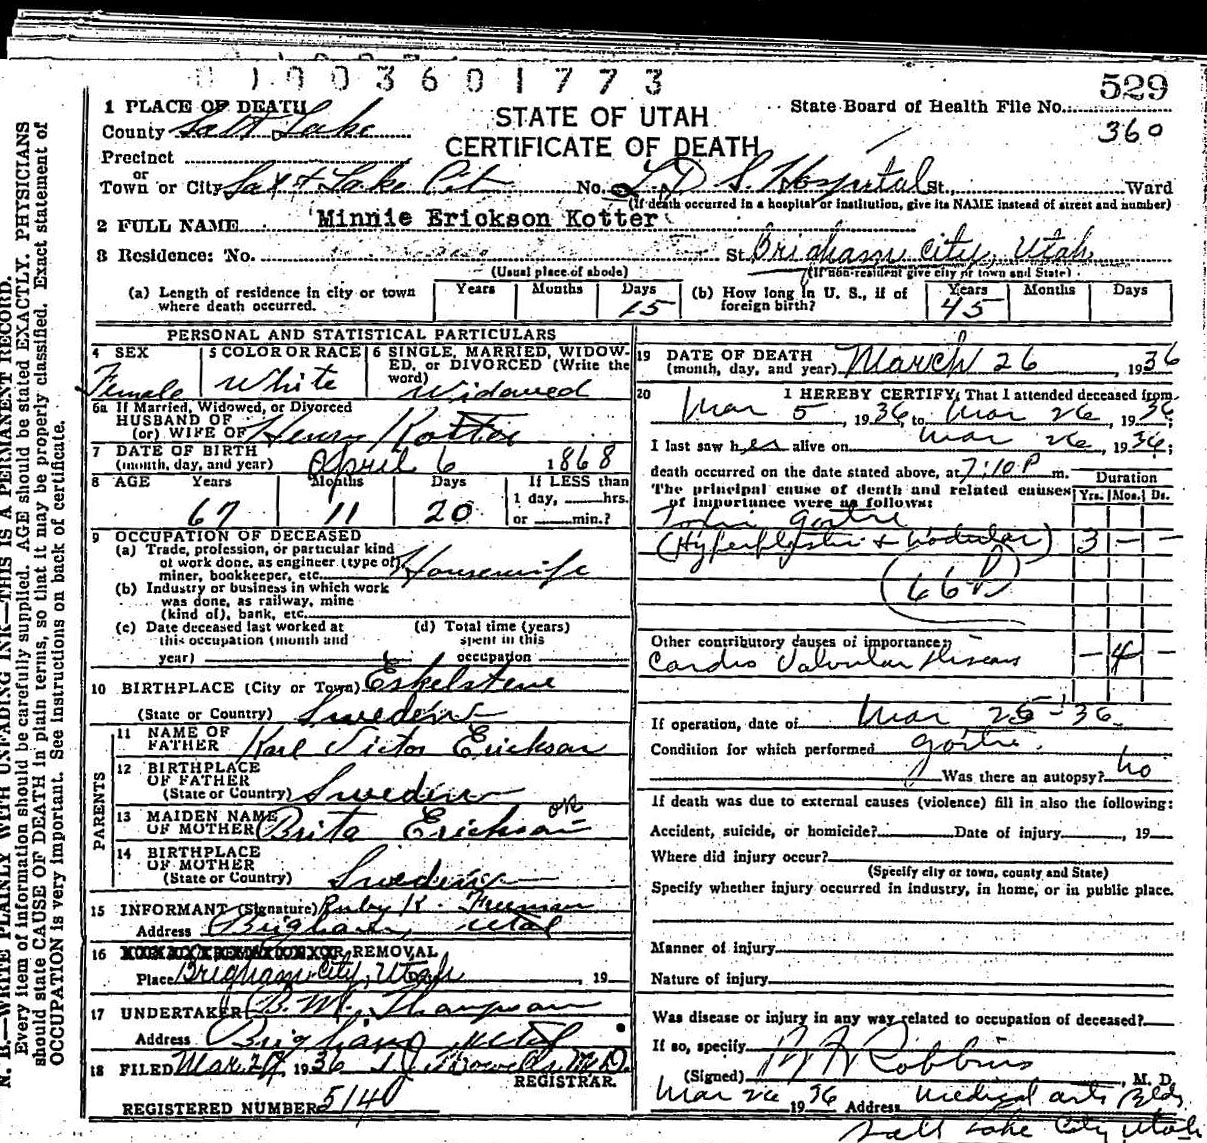 01003601773
529
1 PLACE OF DEATH
STATE OF UTAH
State Board of Health File No.
County Salt Lake
360
CERTIFICATE OF DEATH
Precinct
or
Town or City Salt Lake Cit No. L. D S. Hospital St., Ward
(If death occurred in a hospital or institution, give its NAME instead of street and number)
2 FULL NAME Minnie Erickson Kotter
3 Residence: No. St. Brigham City, Utah
(Usual place of abode) (If non-resident give city or town and State)
(a) Length of residence in city or town where death occurred. Years Months Days 15
(b) How long in U. S., if of foreign birth? Years 45 Months Days
PERSONAL AND STATISTICAL PARTICULARS
4 SEX Female
5 COLOR OR RACE White
6 SINGLE, MARRIED, WIDOWED, or DIVORCED (Write the word) Widowed
6a If Married, Widowed, or Divorced
HUSBAND OF
(or) WIFE OF Henry Kotter
7 DATE OF BIRTH
(month, day, and year) April 6 1868
8 AGE Years 67 Months 11 Days 20 If LESS than
1 day, hrs.
or min.?
9 OCCUPATION OF DECEASED
(a) Trade, profession, or particular kind
of work done, as engineer (type of)
miner, bookkeeper, etc. Housewife
(b) Industry or business in which work
was done, as railway, mine
(kind of), bank, etc.
(c) Date deceased last worked at
this occupation (month and
year)
(d) Total time (years)
spent in this
occupation
10 BIRTHPLACE (City or Town) Eskelstene
(State or Country) Sweden
PARENTS
11 NAME OF
FATHER Karl Victor Erickson
12 BIRTHPLACE
OF FATHER
(State or Country) Sweden
13 MAIDEN NAME
OF MOTHER Brita Erickson
14 BIRTHPLACE
OF MOTHER
(State or Country) Sweden
15 INFORMANT (Signature) Ruby K. Freeman
Address Brigham, Utah
16 REMOVAL
Place Brigham City, Utah, 19
17 UNDERTAKER B. M. Thompson
Address Brigham Utah
18 FILED Mar 27 1936 M.D.
REGISTRAR.
REGISTERED NUMBER 5140
19 DATE OF DEATH
(month, day, and year) March 26, 1936
20 I HEREBY CERTIFY, That I attended deceased from
Mar 5, 1936, to Mar 26, 1936;
I last saw her alive on Mar 26, 1936;
death occurred on the date stated above, at 7:10 P m.
Duration
The principal cause of death and related causes
of importance were as follows:
Yrs. Mos. Ds.
Toxic goitre
(Hyperplastic & nodular) 3 – –
(66b)
Other contributory causes of importance:
Cardio Valvular Disease – 4 –
If operation, date of Mar 25-36
Condition for which performed goitre.
Was there an autopsy? no
If death was due to external causes (violence) fill in also the following:
Accident, suicide, or homicide? Date of injury, 19
Where did injury occur?
(Specify city or town, county and State)
Specify whether injury occurred in industry, in home, or in public place.
Manner of injury
Nature of injury
Was disease or injury in any way related to occupation of deceased?
If so, specify
(Signed) Robbins, M. D.
Mar 26 1936 Address Medical Arts Bldg
Salt Lake City Utah
N. B.—WRITE PLAINLY WITH UNFADING INK—THIS IS A PERMANENT RECORD.
Every item of information should be carefully supplied. AGE should be stated EXACTLY. PHYSICIANS
should state CAUSE OF DEATH in plain terms, so that it may be properly classified. Exact statement of
OCCUPATION is very important. See instructions on back of certificate.